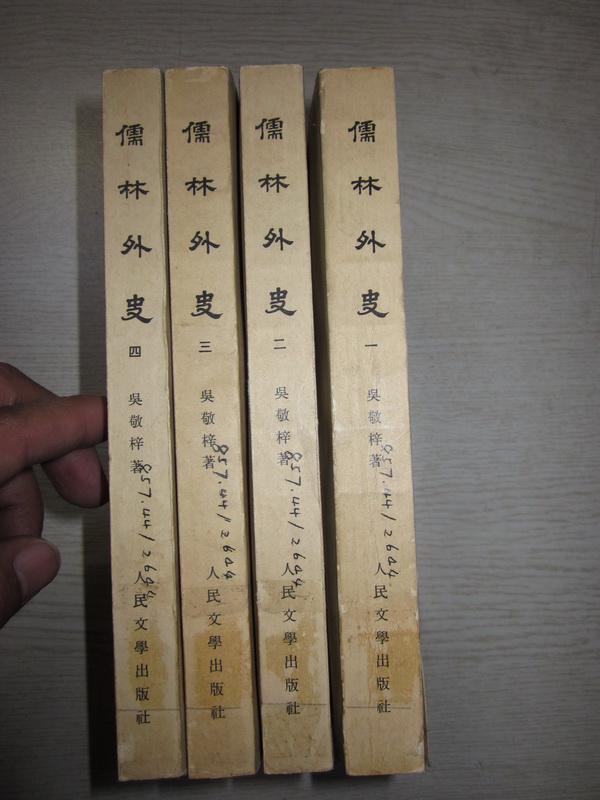 儒林外史
一
吳敬梓著
857.44/2644
人民文學出版社
儒林外史
二
吳敬梓著
857.44/2644
人民文學出版社
儒林外史
三
吳敬梓著
857.44/2644
人民文學出版社
儒林外史
四
吳敬梓著
857.44/2644
人民文學出版社